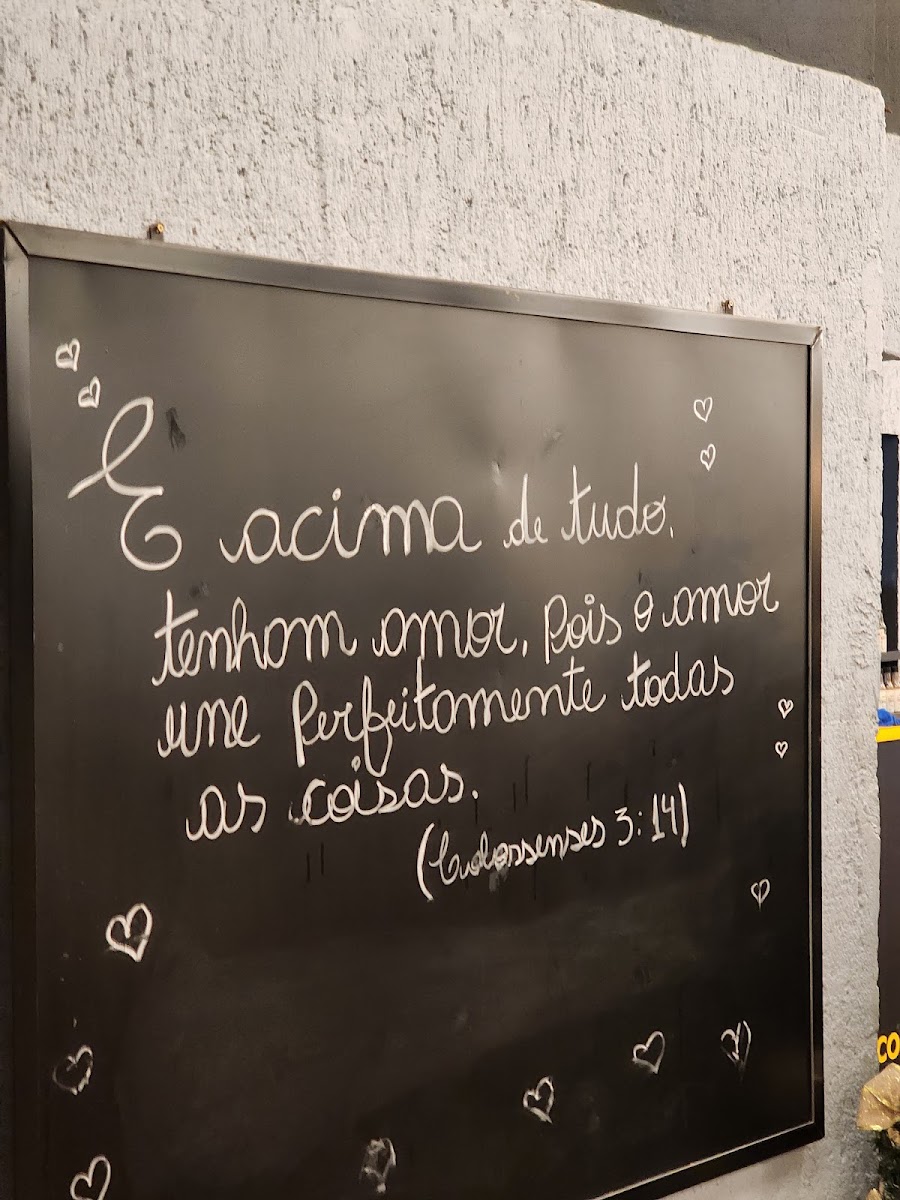 E acima de tudo,
tenham amor, pois o amor
une perfeitamente todas
as coisas.
(Colossenses 3:14)
CO